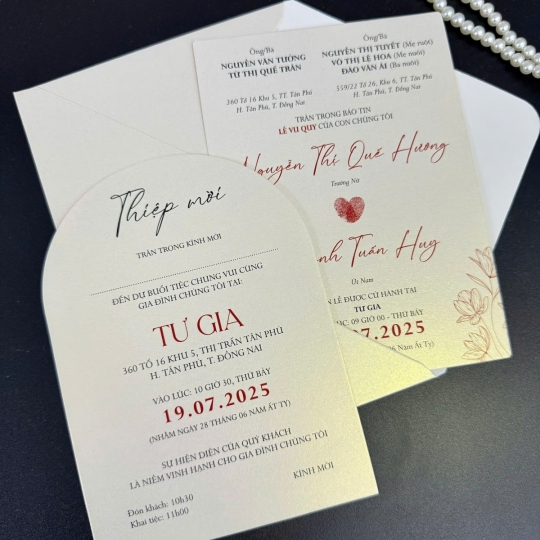 Ông/Bà
NGUYỄN VĂN TƯỜNG
TỪ THỊ QUẾ TRÂN
360 Tổ 16 Khu 5, TT. Tân Phú
H. Tân Phú, T. Đồng Nai
Ông/Bà
NGUYỄN THỊ TUYẾT (Mẹ ruột)
VÕ THỊ LỆ HOA (Mẹ nuôi)
ĐÀO VĂN ÁI (Ba nuôi)
559/22 Tổ 26, Khu 6, TT. Tân Phú
H. Tân Phú, T. Đồng Nai
TRÂN TRỌNG BÁO TIN
LỄ VU QUY CỦA CON CHÚNG TÔI
Nguyễn Thị Quế Hương
Trưởng Nữ
Tuấn Huy
Út Nam
LỄ ĐƯỢC CỬ HÀNH TẠI
TƯ GIA
09 GIỜ 00 - THỨ BẢY
7.2025
Năm Ất Tỵ)
Thiệp mời
TRÂN TRỌNG KÍNH MỜI
ĐẾN DỰ BUỔI TIỆC CHUNG VUI CÙNG
GIA ĐÌNH CHÚNG TÔI TẠI:
TƯ GIA
360 TỔ 16 KHU 5, THỊ TRẤN TÂN PHÚ
H. TÂN PHÚ, T. ĐỒNG NAI
VÀO LÚC: 10 GIỜ 30, THỨ BẢY
19.07.2025
(NHẰM NGÀY 28 THÁNG 06 NĂM ẤT TỴ)
SỰ HIỆN DIỆN CỦA QUÝ KHÁCH
LÀ NIỀM VINH HẠNH CHO GIA ĐÌNH CHÚNG TÔI
KÍNH MỜI
Đón khách: 10h30
Khai tiệc: 11h00